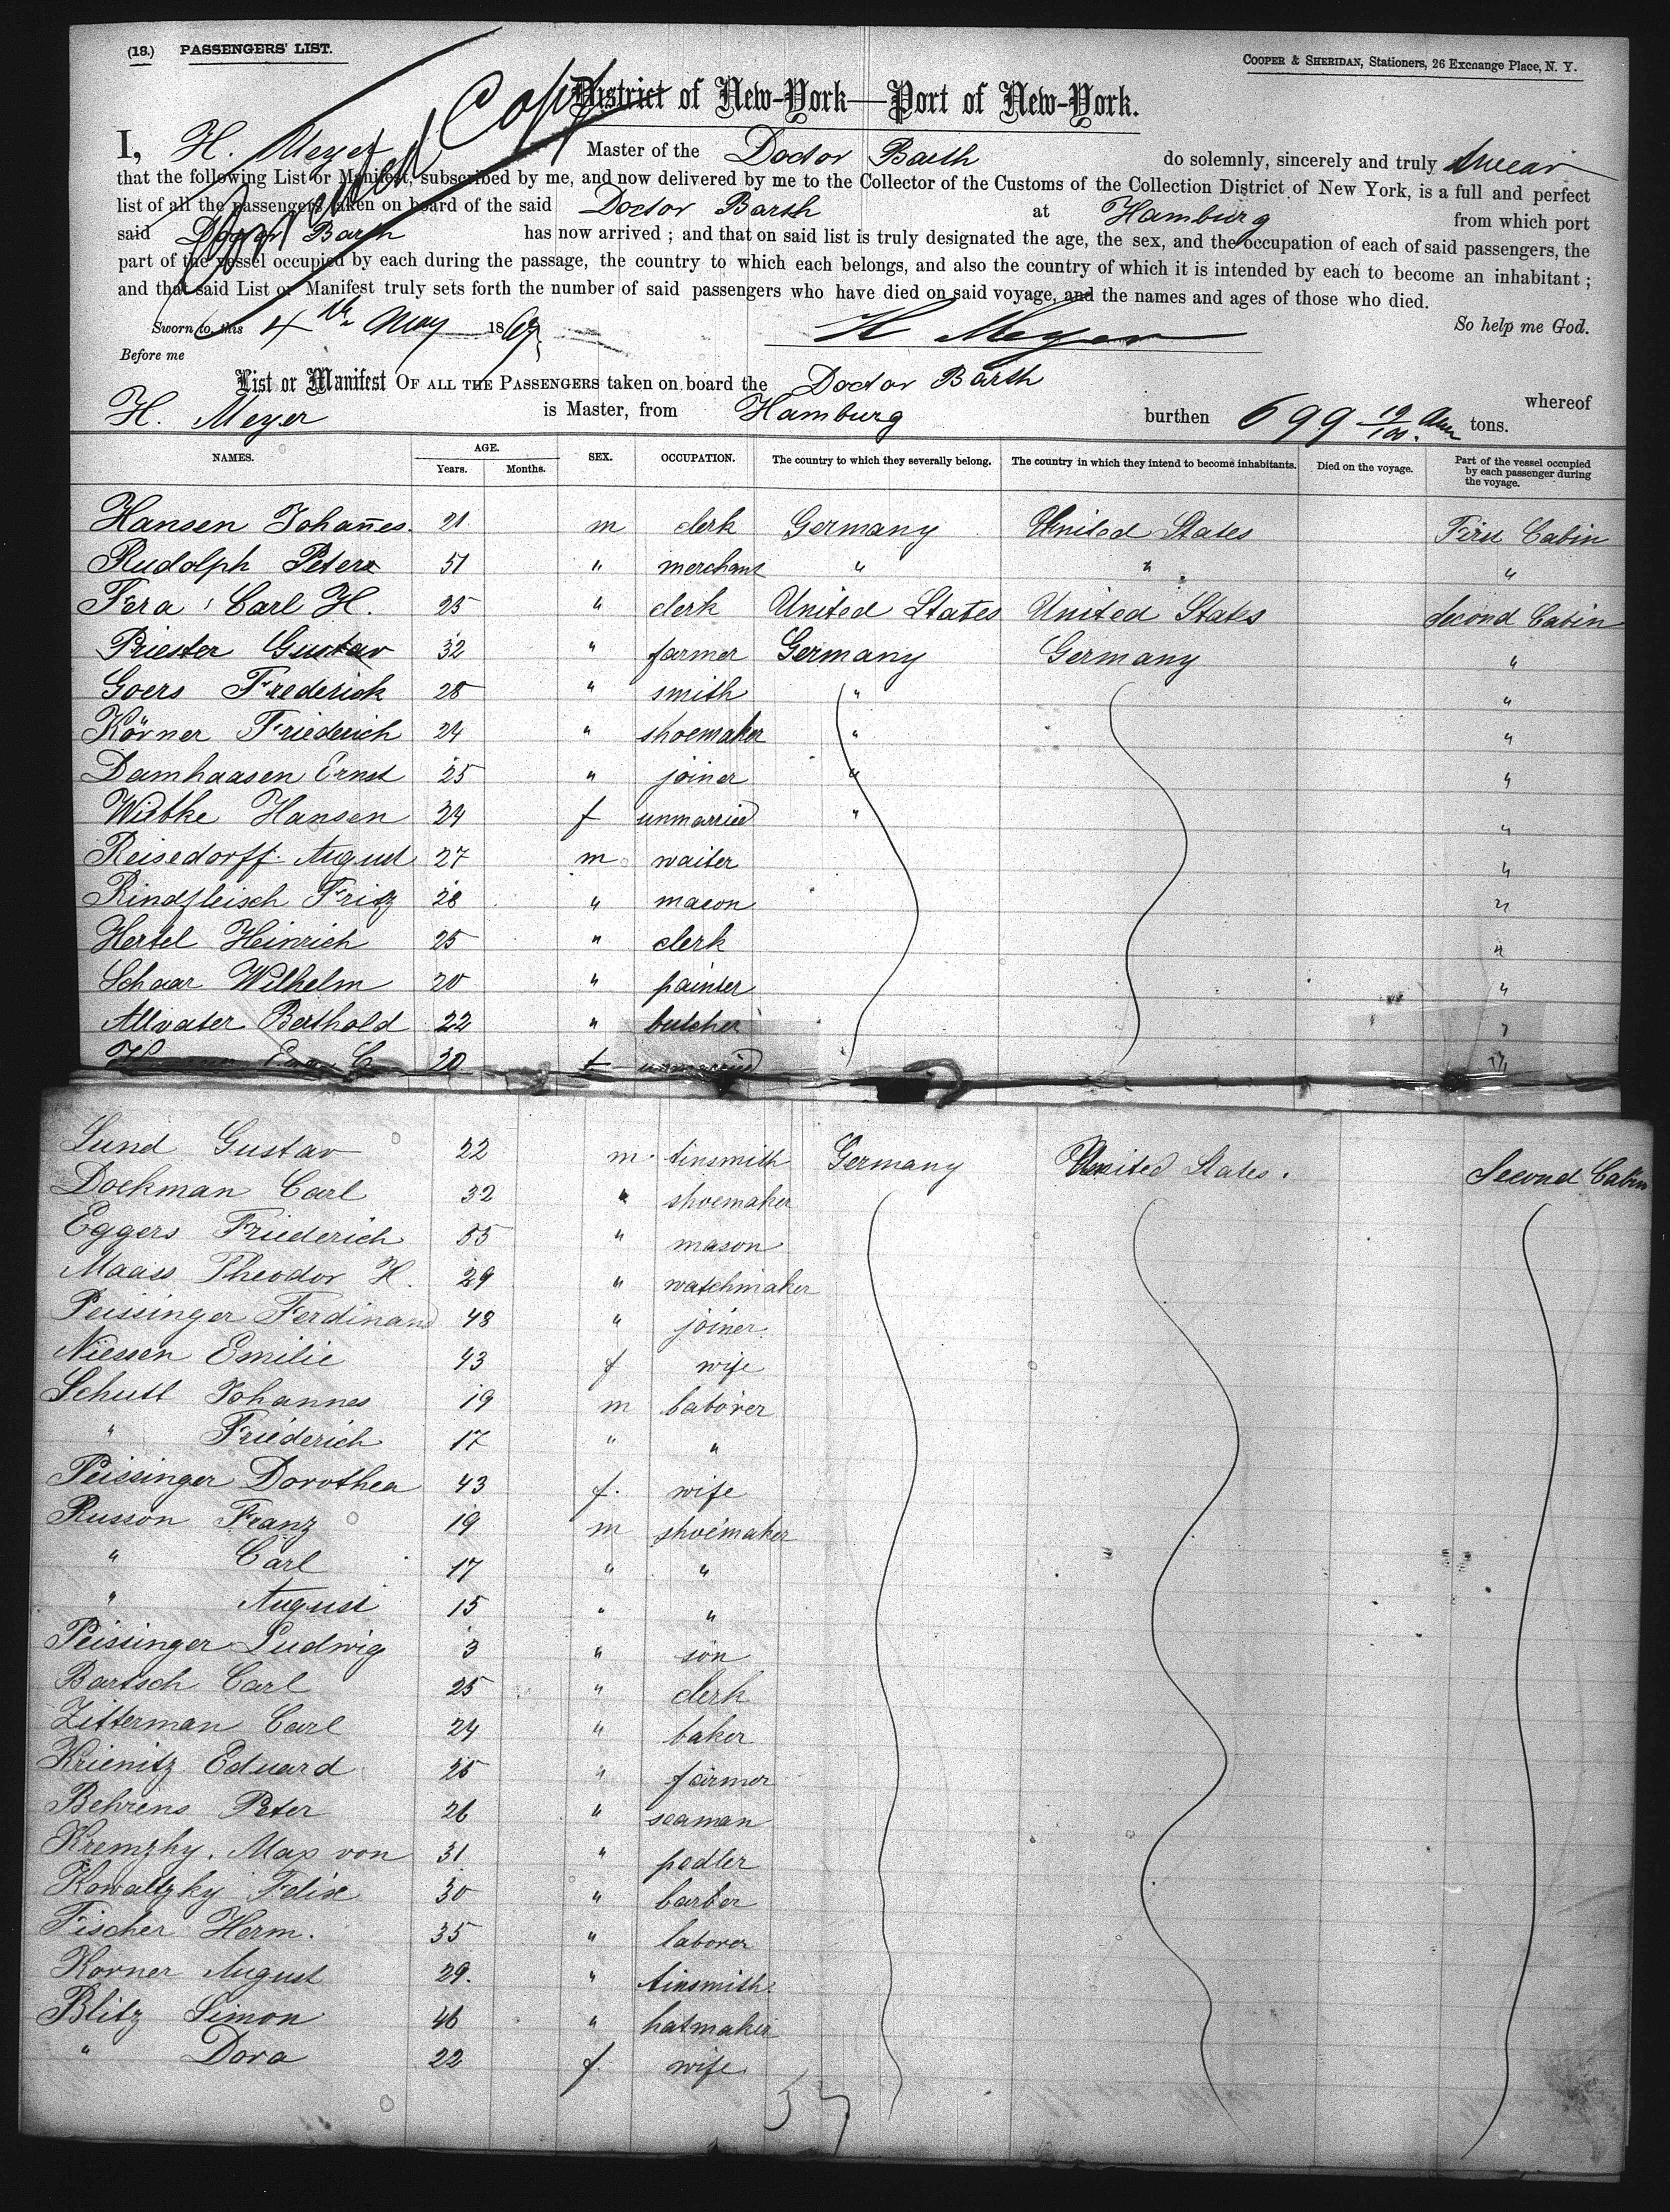 (18.) PASSENGERS' LIST.
COOPER & SHERIDAN, Stationers, 26 Exchange Place, N. Y.
Copy
District of New-York—Port of New-York.
I, H. Meyer Master of the Doctor Barth do solemnly, sincerely and truly swear
that the following List or Manifest, subscribed by me, and now delivered by me to the Collector of the Customs of the Collection District of New York, is a full and perfect
list of all the passengers taken on board of the said Doctor Barth at Hamburg from which port
said Doctor Barth has now arrived ; and that on said list is truly designated the age, the sex, and the occupation of each of said passengers, the
part of the vessel occupied by each during the passage, the country to which each belongs, and also the country of which it is intended by each to become an inhabitant ;
and that said List or Manifest truly sets forth the number of said passengers who have died on said voyage, and the names and ages of those who died.
Sworn to, this 4th May 1869 So help me God.
H Meyer
Before me
List or Manifest OF ALL THE PASSENGERS taken on board the Doctor Barth whereof
H. Meyer is Master, from Hamburg burthen 699 19/100 tons.
NAMES. AGE. SEX. OCCUPATION. The country to which they severally belong. The country in which they intend to become inhabitants. Died on the voyage. Part of the vessel occupied by each passenger during the voyage.
Years. Months.
Hansen Johan̄es. 21 m clerk Germany United States First Cabin
Rudolph Peter 51 " merchant " " "
Fera Carl H. 25 " clerk United States United States Second Cabin
Priester Gustav 32 " farmer Germany Germany "
Goers Frederick 28 " smith " "
Körner Friederich 24 " shoemaker " "
Damhaasen Ernst 25 " joiner " "
Wiebke Hansen 24 f unmarried " "
Reisedorff August 27 m waiter "
Rindfleisch Fritz 28 " mason "
Hertel Heinrich 25 " clerk "
Schaar Wilhelm 20 " painter "
Allvater Berthold 22 " butcher "
20 f unmarried "
Lund Gustav 22 m. tinsmith Germany United States. Second Cabin
Dockman Carl 32 " shoemaker
Eggers Friederich 35 " mason
Maass Theodor H. 29 " watchmaker
Peissinger Ferdinand 48 " joiner
Niessen Emilie 43 f wife
Schutt Johannes 19 m laborer
" Friederich 17 " "
Peissinger Dorothea 43 f. wife
Russon Franz 19 m shoemaker
" Carl 17 " "
" August 15 " "
Peissinger Ludwig 3 " son
Bartsch Carl 25 " clerk
Zitterman Carl 24 " baker
Krienitz Eduard 25 " farmer
Behrens Peter 26 " seaman
Kremzhy, Max von 31 " pedler
Kowaltzky Felix 30 " barber
Fischer Herm. 35 " laborer
Korner August 29. " tinsmith
Blitz Simon 46 " hatmaker
" Dora 22 f. wife
37